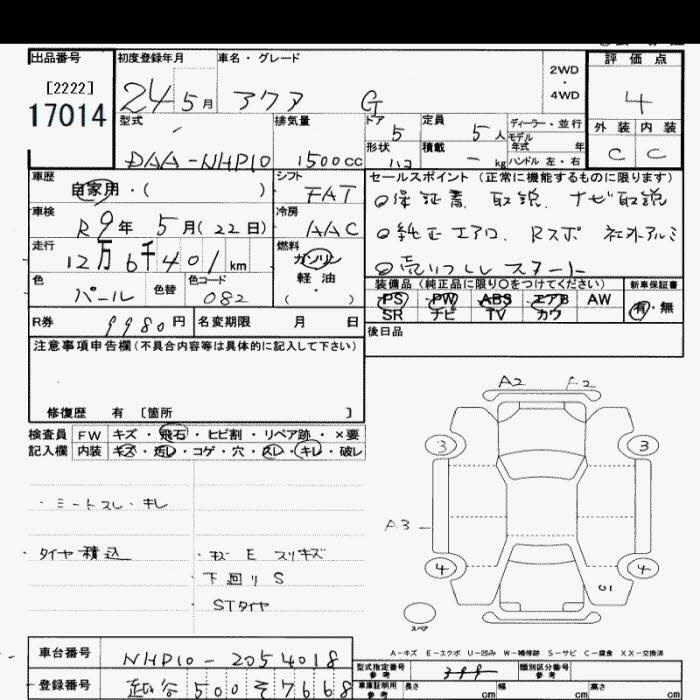 出品番号 初度登録年月 車名・グレード 評価点
[2222] 24年5月 アクア G 2WD・4WD 4
17014 型式 排気量 ドア 5 定員 5人 ディーラー・並行 外装 内装
モデル年式 年
DAA-NHP10 1500cc 形状 ハコ 積載 - kg ハンドル 左・右 C C
車歴 自家用・( ) シフト FAT セールスポイント (正常に機能するものに限ります)
○保証書 取説 ナビ取説
車検 R9年 5月(22日) 冷房 AAC
○純正エアロ、Rスポ 社外アルミ
走行 12万6千401km 燃料 ガソリン 軽油 ( )
色 パール 色替 色コード 082
装備品 (純正品に限り○をつけてください) 新車保証書
PS PW ABS エアB AW 有・無
SR ナビ TV カワ
R券 9980円 名変期限 月 日
後日品
注意事項申告欄(不具合内容等は具体的に記入して下さい)
修復歴 有 [箇所 ]
検査員 FW キズ・飛石・ヒビ割・リペア跡・×要
記入欄 内装 キズ・汚レ・コゲ・穴・スレ・キレ・破レ
A2 A2
3 3
・シートスレ・キレ
A3
・タイヤ積込 ・キズ E スリキズ
4 4
・下回り S
C1
・STタイヤ
スペア
A-キズ E-エクボ U-凹み W-補修跡 S-サビ C-腐食 XX-交換済
車台番号 NHP10-2054018 型式指定番号 参考 類別区分番号 参考
登録番号 越谷 500 そ 7668 車庫証明用 参考 長さ cm 幅 cm 高さ cm